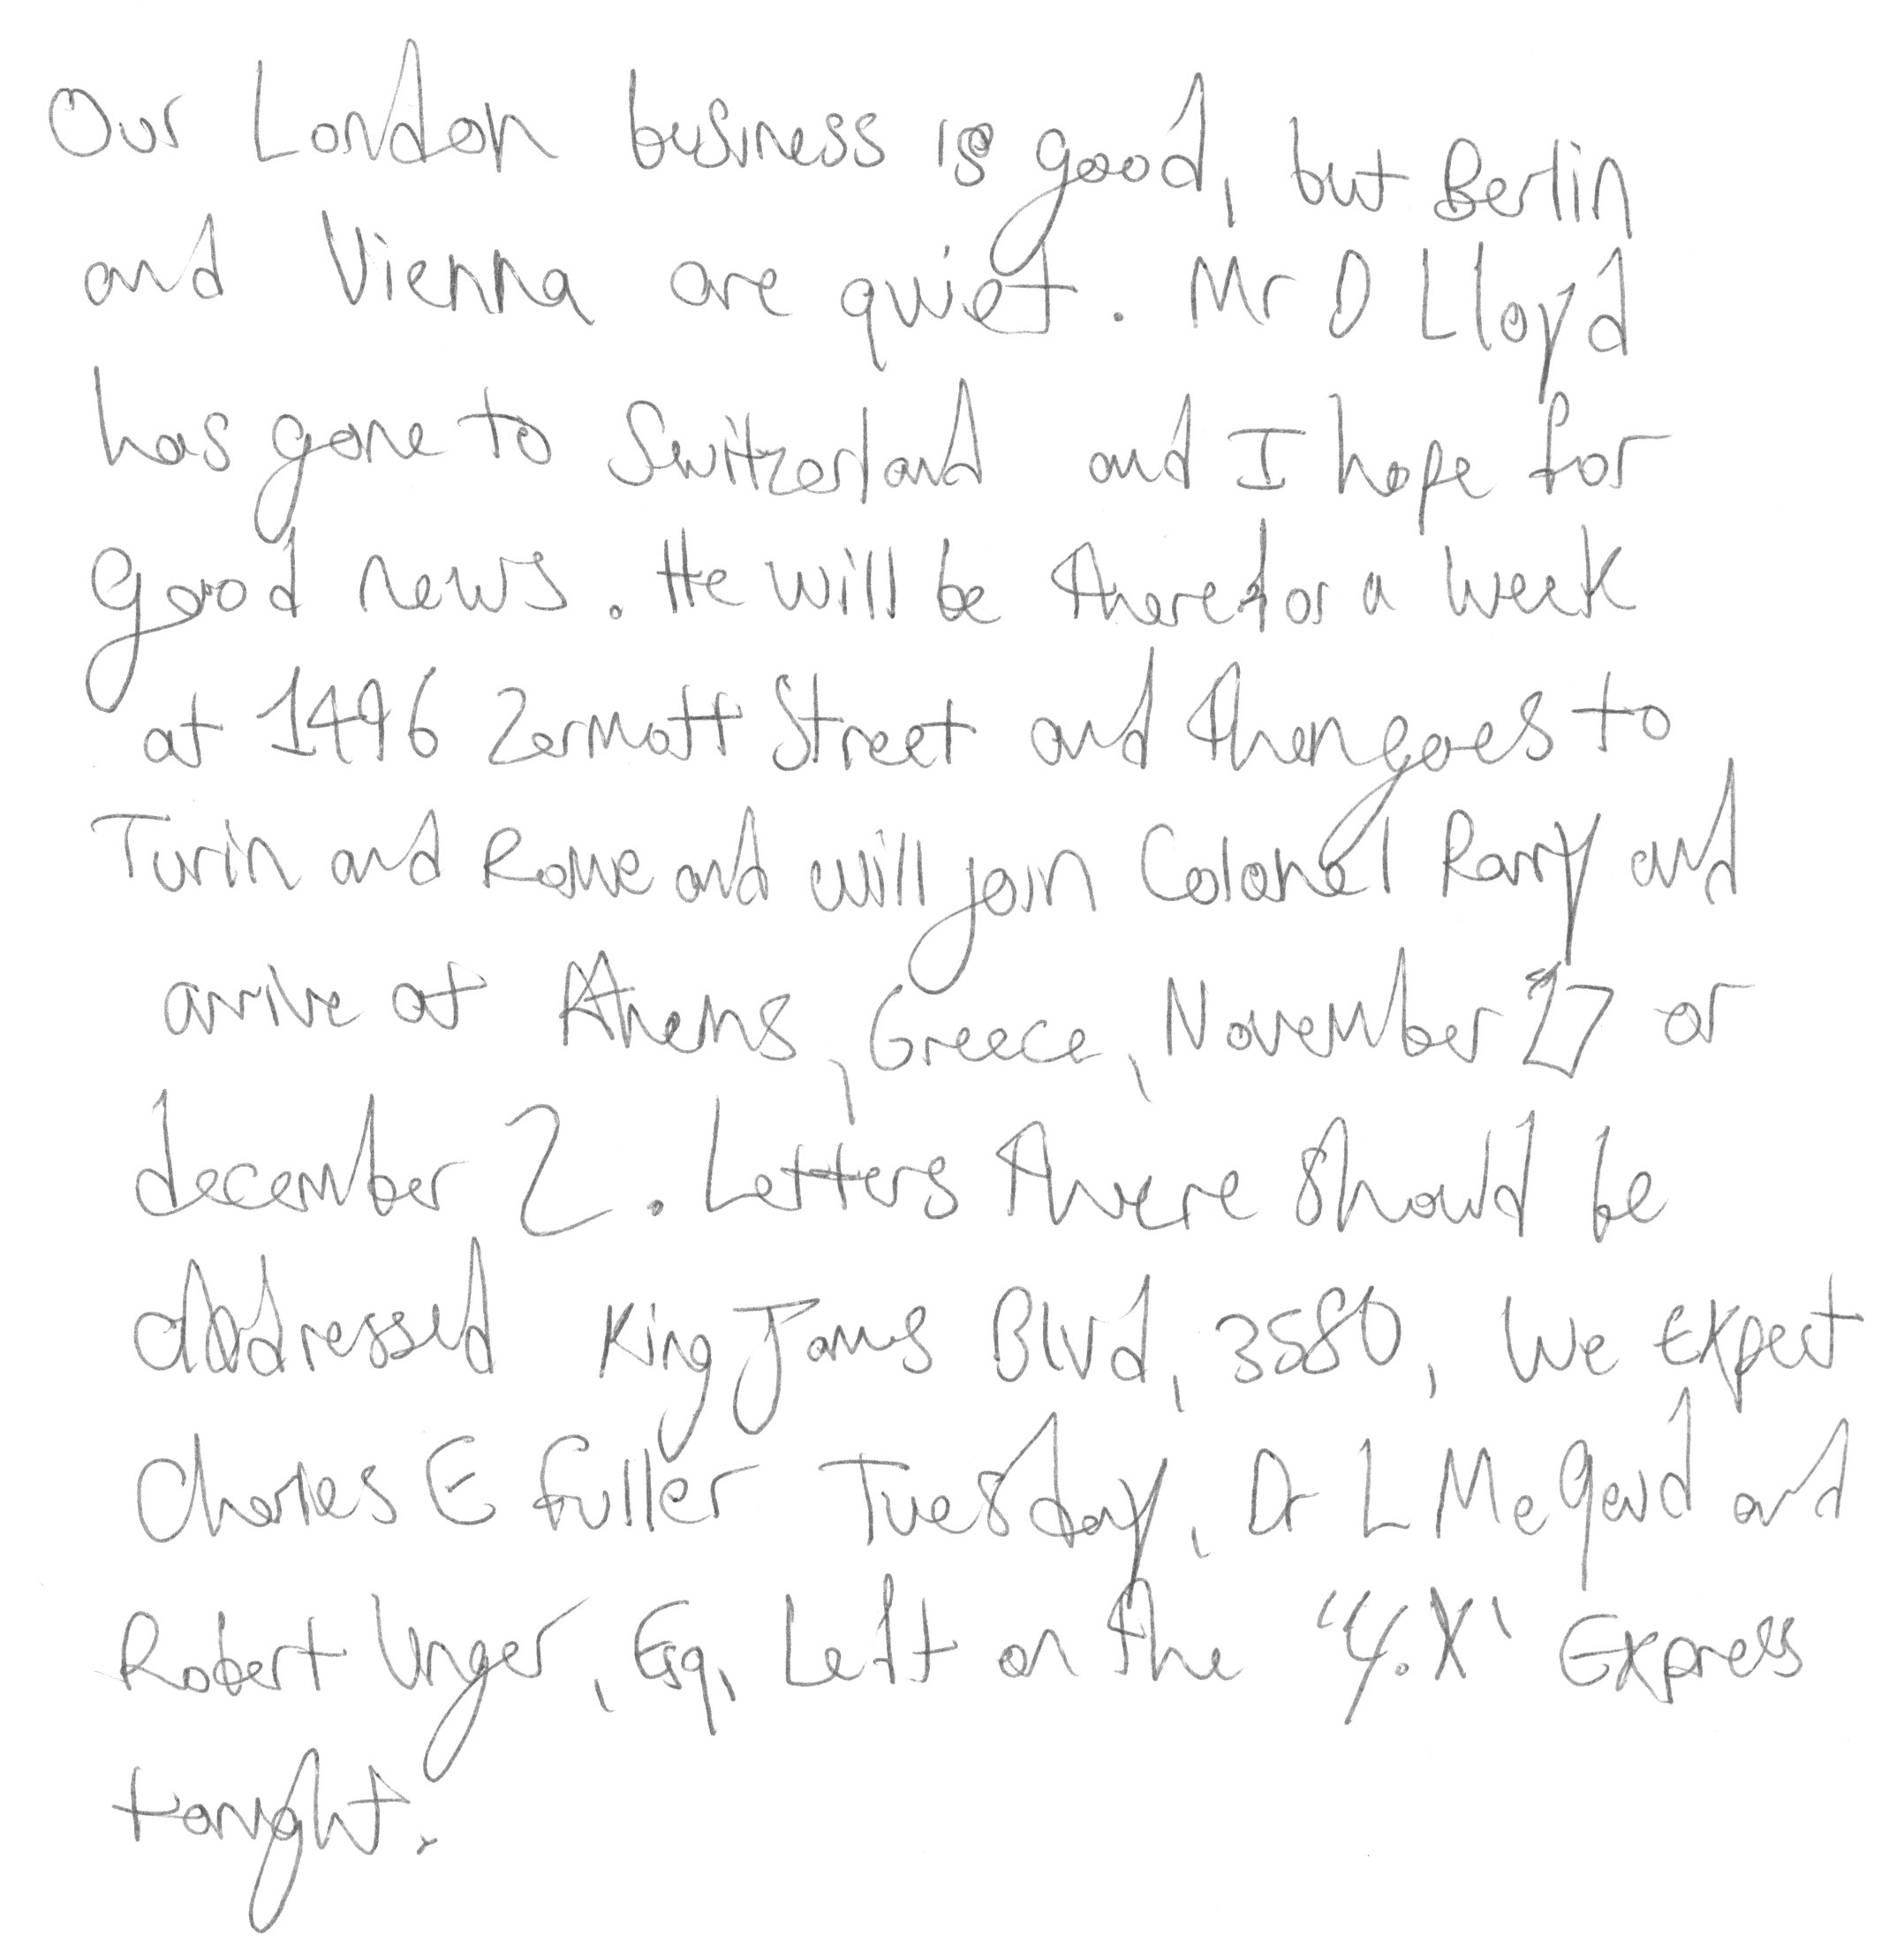 Our London business is good, but Berlin
and Vienna are quiet. Mr D Lloyd
has gone to Switzerland and I hope for
good news. He will be there for a week
at 1496 Zermott Street and then goes to
Turin and Rome and will join Colonel Parry and
arrive at Athens, Greece, November 27 or
december 2. Letters there should be
addressed King James Blvd, 3580, We expect
Charles E Fuller Tuesday, Dr L McQuad and
Robert Unger, Esq, Left on the "Y.X' Express
tonight.